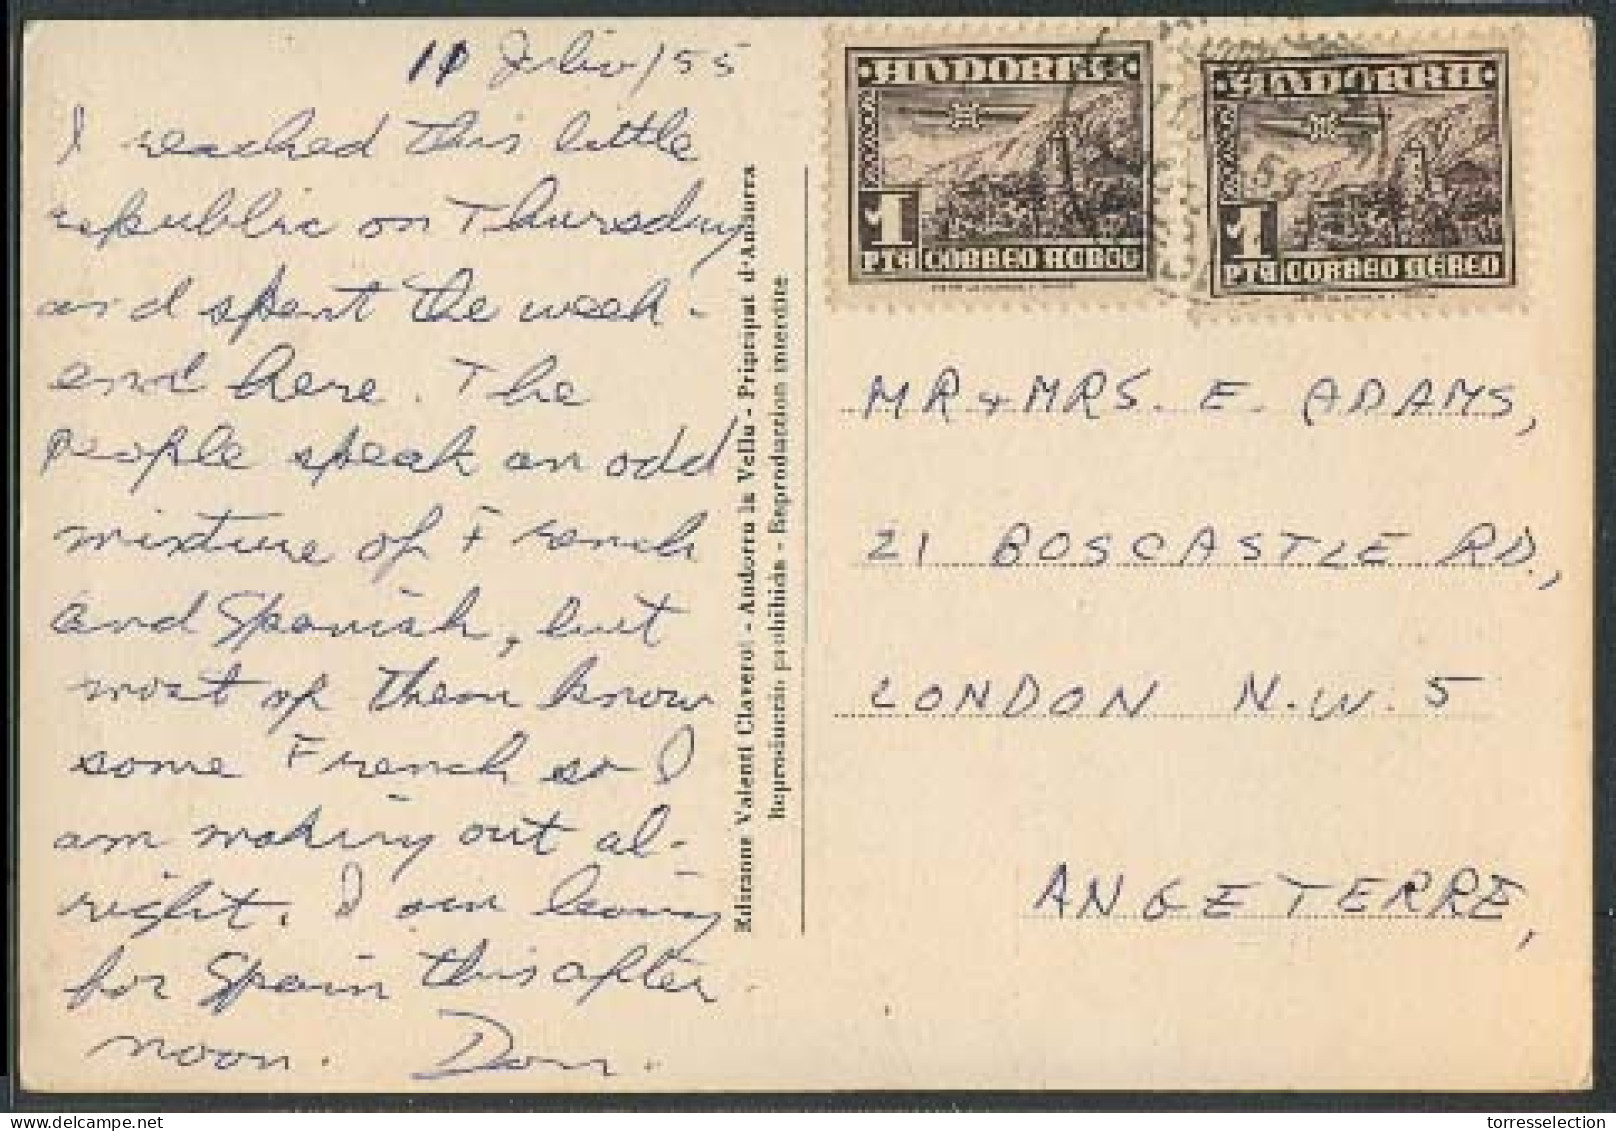 11 Julio/55
I reached this little
republic on Thursday
and spent the week-
end here. The
people speak an odd
mixture of French
and Spanish, but
most of them know
some French so I
am making out al-
right. I am leaving
for Spain this after
noon. Don.
Edicions Valentí Claverol - Andorra la Vella - Principat d'Andorra
Reproducció prohibida - Reproduction interdite
·ANDORRA·
1
PTA CORREO AEREO
·ANDORRA·
1
PTA CORREO AEREO
MR & MRS. E. ADAMS,
21 BOSCASTLE RD.,
LONDON N.W. 5
ANGETERRE,
torresselection